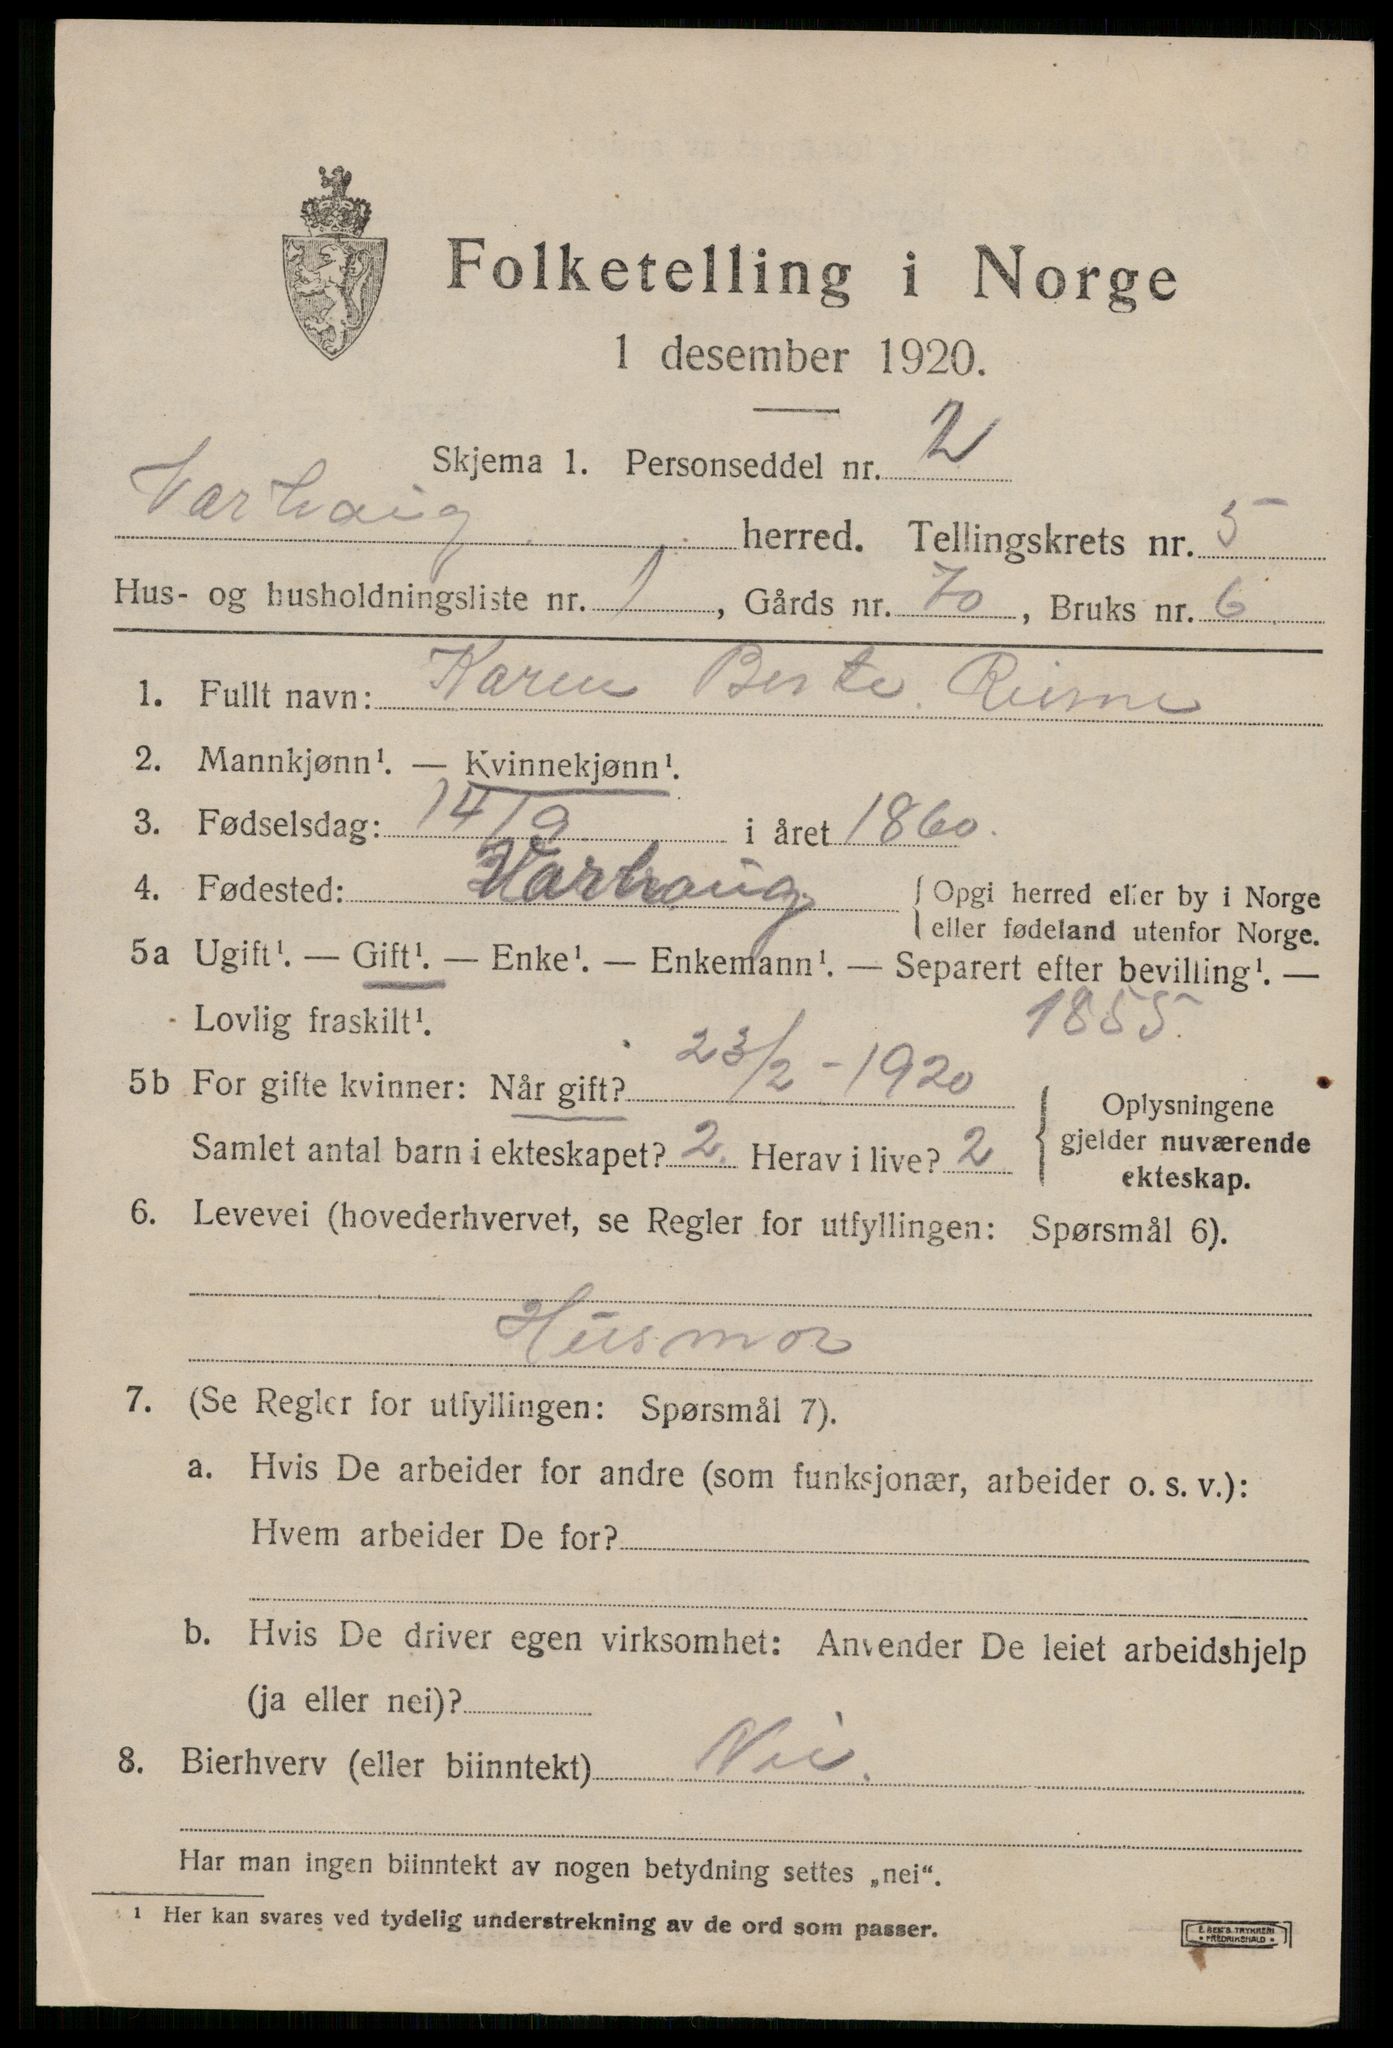 Folketelling i Norge
1 desember 1920.
Skjema 1. Personseddel nr. 2
Varhaug herred. Tellingskrets nr. 5
Hus- og husholdningsliste nr. 1, Gårds nr. 70, Bruks nr. 6
1. Fullt navn: Karen Berte
2. Mannkjønn¹. — Kvinnekjønn¹.
3. Fødselsdag: 14/9 i året 1860.
4. Fødested: Varhaug { Opgi herred eller by i Norge
eller fødeland utenfor Norge.
5a Ugift¹. — Gift¹. — Enke¹. — Enkemann¹. — Separert efter bevilling¹. —
Lovlig fraskilt¹. 1855.
5b For gifte kvinner: Når gift? 23/2 - 1920
Samlet antal barn i ekteskapet? 2. Herav i live? 2
{ Oplysningene
gjelder nuværende
ekteskap.
6. Levevei (hovederhvervet, se Regler for utfyllingen: Spørsmål 6).
Husmor
7. (Se Regler for utfyllingen: Spørsmål 7).
a. Hvis De arbeider for andre (som funksjonær, arbeider o. s. v.):
Hvem arbeider De for?
b. Hvis De driver egen virksomhet: Anvender De leiet arbeidshjelp
(ja eller nei)?
8. Bierhverv (eller biinntekt) Nei.
Har man ingen biinntekt av nogen betydning settes „nei“.
¹ Her kan svares ved tydelig understrekning av de ord som passer.
E. SEM'S TRYKKERI
• FREDRIKSHALD •